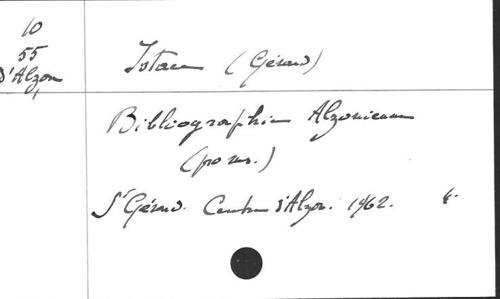 10
55
d'Alzon
Istace (Gérard)
Bibliographie Alzonienne
(pro ms.)
St Gérard. Centre d'Alzon. 1962.